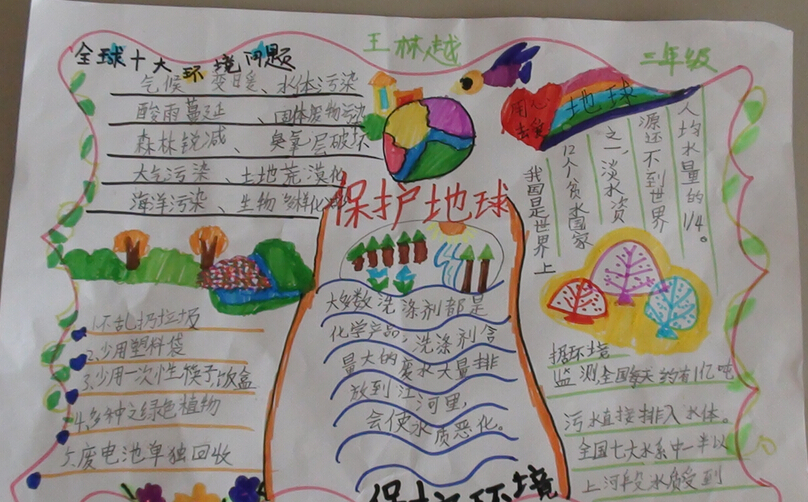 王林越
三年级
全球十大环境问题
气候变暖、水体污染
酸雨蔓延、固体废物污染
森林锐减、臭氧层破坏
大气污染、土地荒漠化
海洋污染、生物多样化
用心
地球
我国是世界上
12个贫水国家
之一,淡水资
源还不到世界
人均水量的1/4。
保护地球
大多数洗涤剂都是
化学产品,洗涤剂含
量大的废水大量排
放到江河里,
会使水质恶化。
1.不乱扔垃圾
2.少用塑料袋
3.少用一次性筷子,饭盒
4.多种之绿色植物
5.废电池单独回收
据环境
监测,全国每天约有1亿吨
污水直接排入水体。
全国七大水系中一半以
上河段水质受到
保护环境